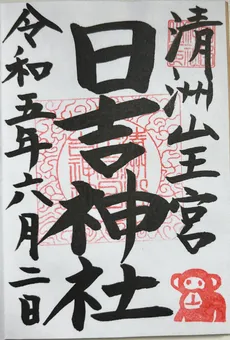 清洲山王宮
日吉神社
令和五年六月二日